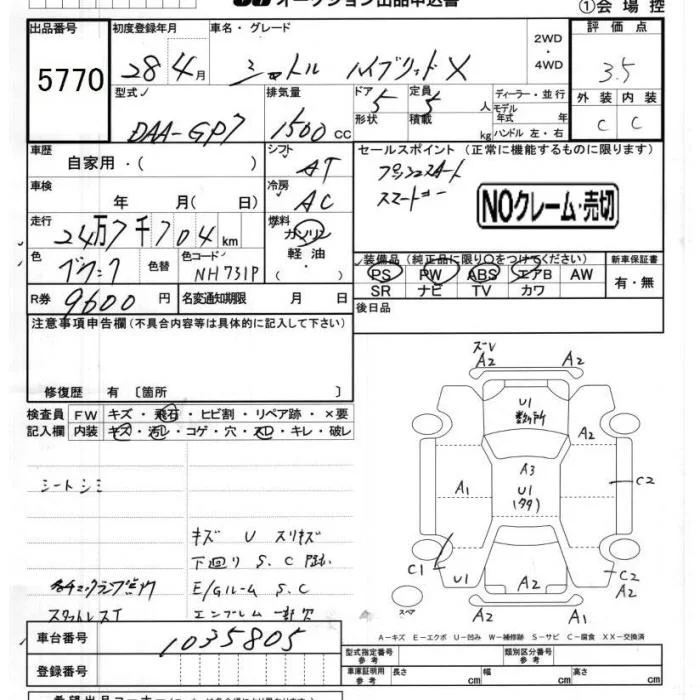 オークション出品申込書
①会場控
出品番号 初度登録年月 車名・グレード 評価点
5770 28年4月 シャトル ハイブリッドX 2WD・4WD 3.5
型式 排気量 ドア 定員 ディーラー・並行 外装 内装
DAA-GP7 1500cc 5 5人 モデル年式 年 C C
形状 積載 kg ハンドル 左・右
車歴 シフト セールスポイント（正常に機能するものに限ります）
自家用・（ ） AT プッシュスタート
車検 冷房 スマートキー
年 月（ 日） AC NOクレーム・売切
走行 燃料
24万7千704km ガソリン
色 色替 色コード 軽油
NH731P ・（ ）
装備品（純正品に限り○をつけてください） 新車保証書
PS PW ABS エアB AW 有・無
SR ナビ TV カワ
R券 9600円 名変通知期限 月 日 後日品
注意事項申告欄（不具合内容等は具体的に記入して下さい）
修復歴 有 〔箇所 〕
検査員 FW キズ・飛石・ヒビ割・リペア跡・×要
記入欄 内装 キズ・汚レ・コゲ・穴・スレ・キレ・破レ
シートシミ
キズ U スリキズ
下廻り S.C
E/Gルーム S.C
エンブレム一部欠
A2 A2
U1
A2
A3
A1 U1 C2
C1 U1 A2 C2
A2
スペア A2 A1
A－キズ E－エクボ U－凹み W－補修跡 S－サビ C－腐食 XX－交換済
車台番号 1035805
登録番号
型式指定番号 参考 類別区分番号 参考
車庫証明用 参考 長さ cm 幅 cm 高さ cm